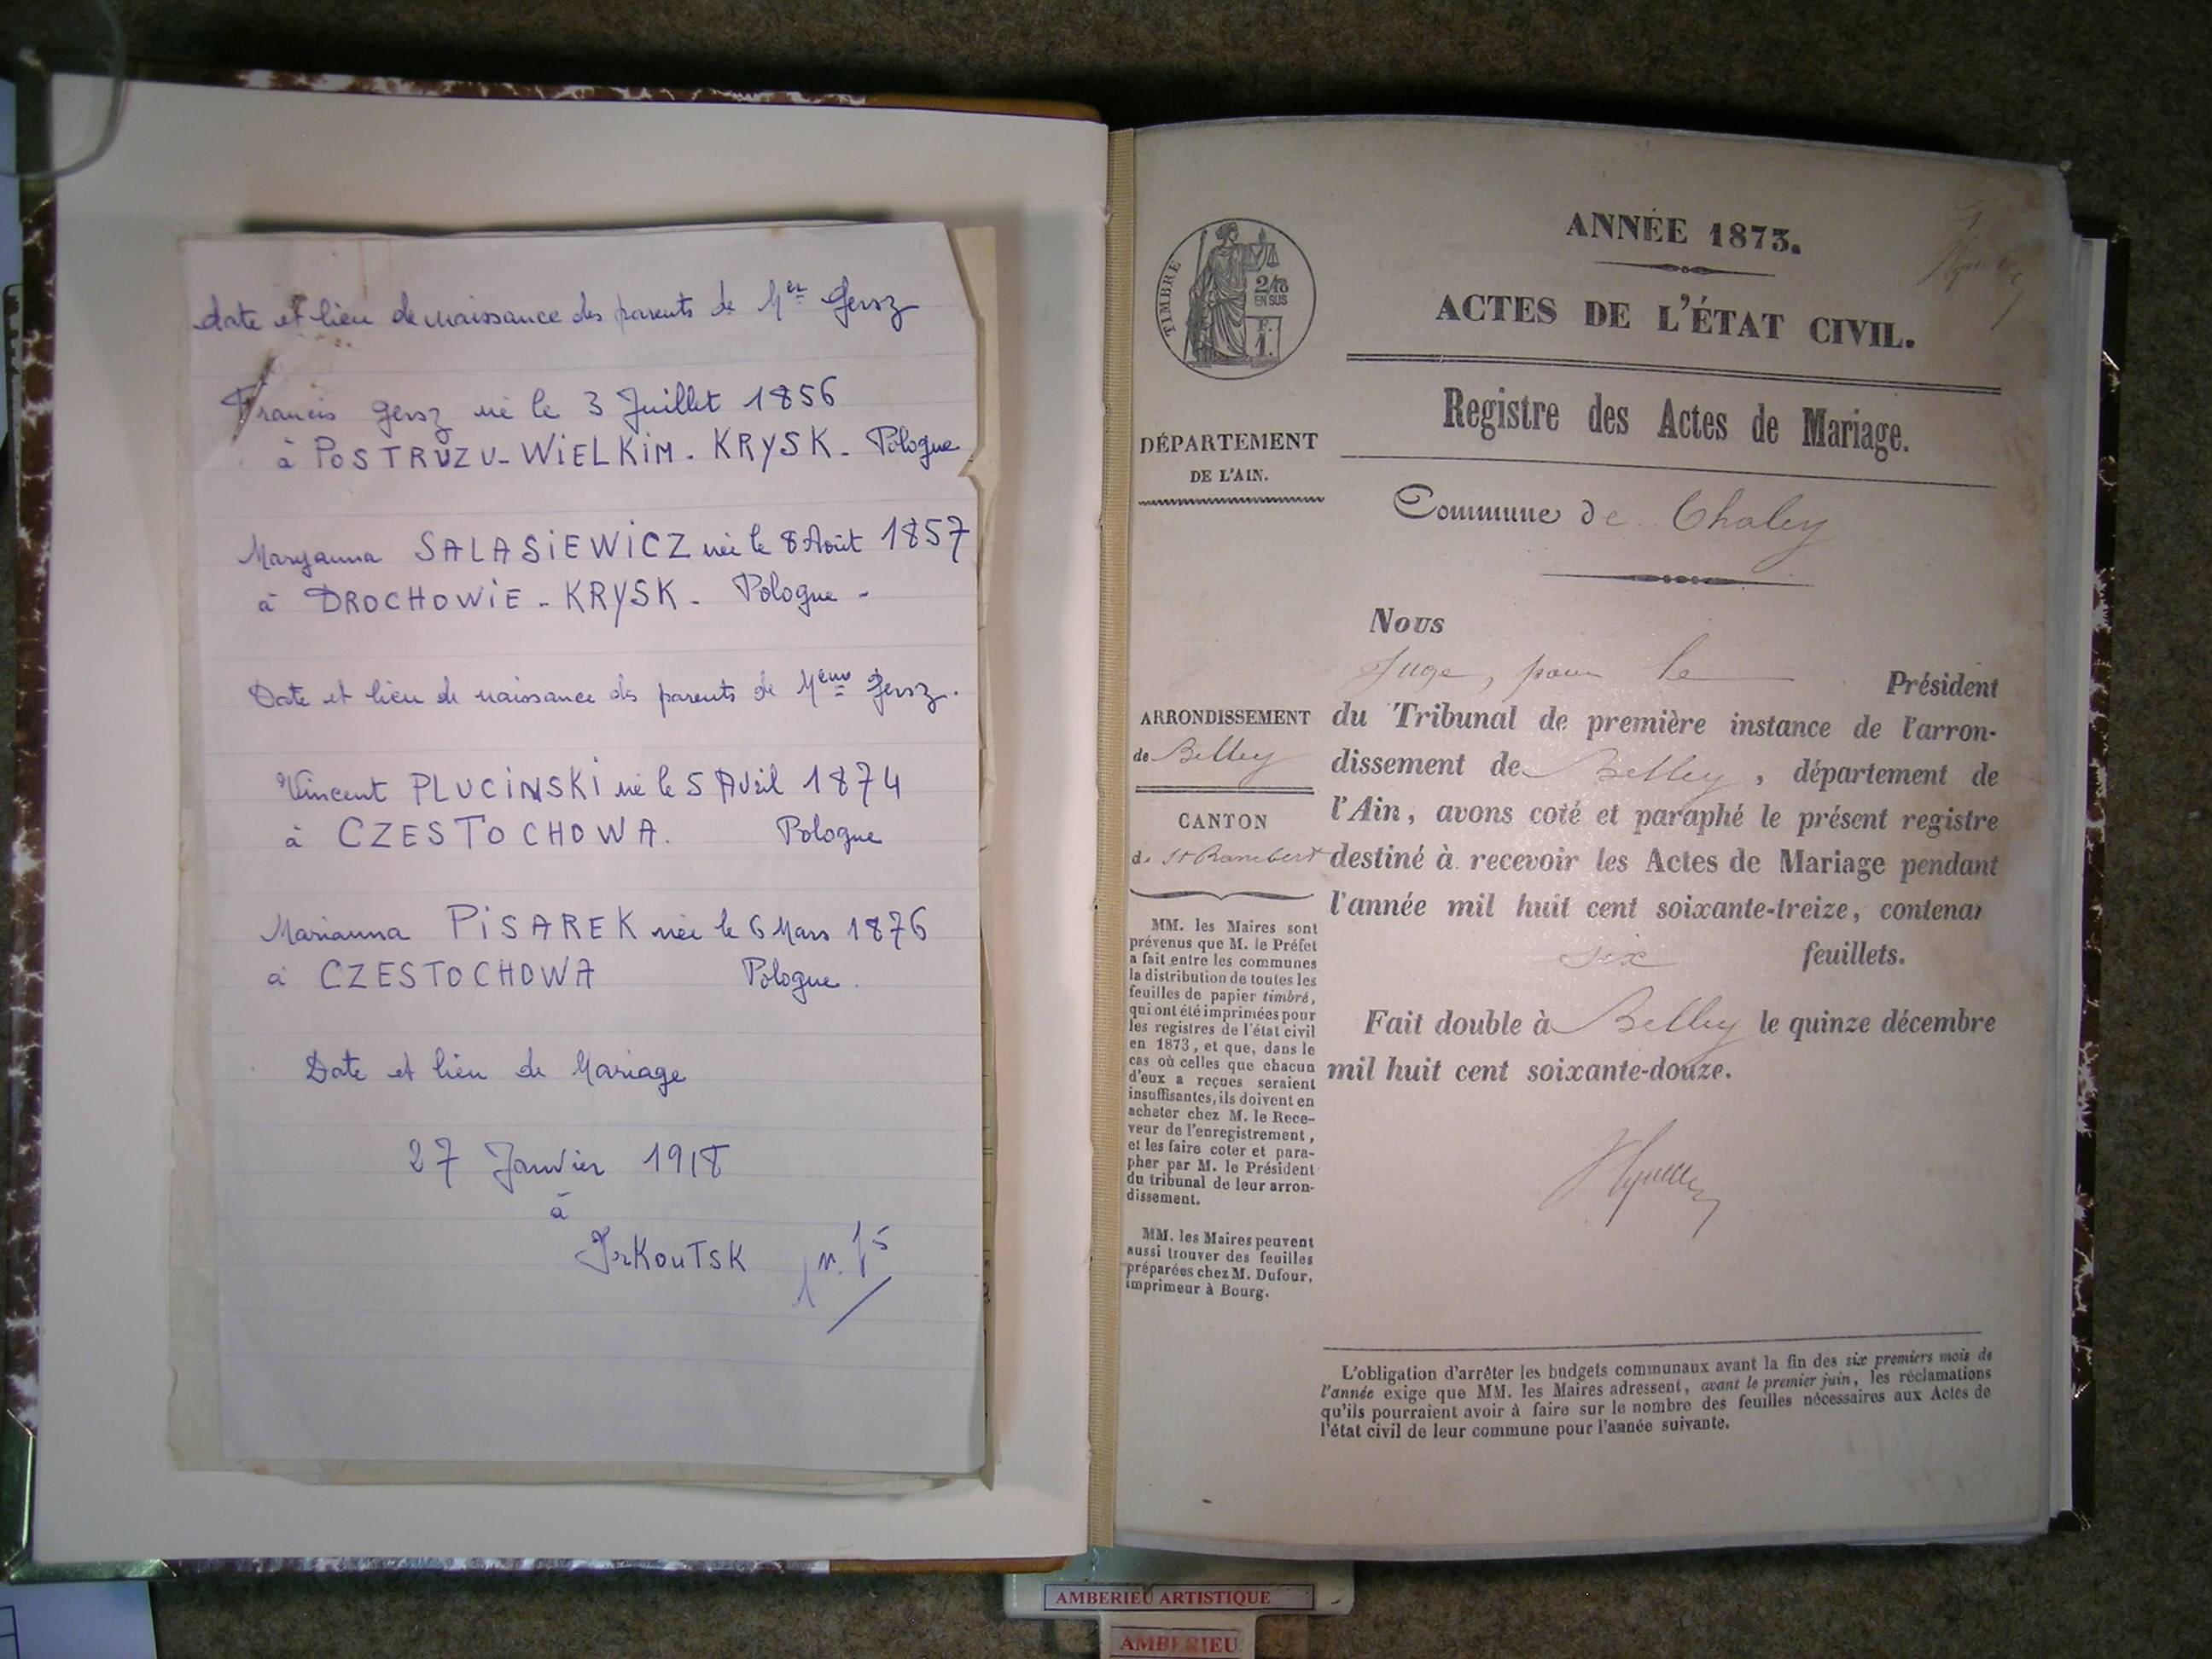 date et lieu de naissance des parents de Mer Gersz
Francis Gersz né le 3 Juillet 1856
à POSTRUZU-WiELKiM. KRYSK. Pologne
Maryanna SALASiEWiCZ née le 8 Août 1857
à DROCHOWiE - KRYSK - Pologne -
Date et lieu de naissance des parents de Mème Gersz.
Vincent PLUCiNSKi né le 5 Avril 1874
à CZESTOCHOWA. Pologne
Marianna PiSAREK née le 6 Mars 1876
à CZESTOCHOWA Pologne.
Date et lieu de Mariage
27 Janvier 1918
à
IrKouTSK
TIMBRE
2/10
EN SUS
F.
1.
DÉPARTEMENT
DE L'AIN.
ARRONDISSEMENT
de Belley
CANTON
de St Rambert
MM. les Maires sont
prévenus que M. le Préfet
a fait entre les communes
la distribution de toutes les
feuilles de papier timbré,
qui ont été imprimées pour
les registres de l'état civil
en 1873, et que, dans le
cas où celles que chacun
d'eux a reçues seraient
insuffisantes, ils doivent en
acheter chez M. le Rece-
veur de l'enregistrement,
et les faire coter et para-
pher par M. le Président
du tribunal de leur arron-
dissement.
MM. les Maires peuvent
aussi trouver des feuilles
préparées chez M. Dufour,
imprimeur à Bourg.
ANNÉE 1873.
ACTES DE L'ÉTAT CIVIL.
Registre des Actes de Mariage.
Commune de Chaley
Nous
Juge, pour le Président
du Tribunal de première instance de l'arron-
dissement de Belley, département de
l'Ain, avons coté et paraphé le présent registre
destiné à recevoir les Actes de Mariage pendant
l'année mil huit cent soixante-treize, contenan
six feuillets.
Fait double à Belley le quinze décembre
mil huit cent soixante-douze.
L'obligation d'arrêter les budgets communaux avant la fin des six premiers mois de
l'année exige que MM. les Maires adressent, avant le premier juin, les réclamations
qu'ils pourraient avoir à faire sur le nombre des feuilles nécessaires aux Actes de
l'état civil de leur commune pour l'année suivante.
AMBERIEU ARTISTIQUE
AMBERIEU